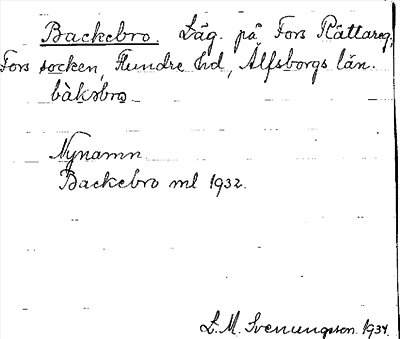 Backebro. Läg. på Fors Rättareg,
Fors socken, Flundre hd, Älfsborgs län.
bàksbro
Nynamn
Backebro ml 1932.
L. M. Svenungsson. 1934.